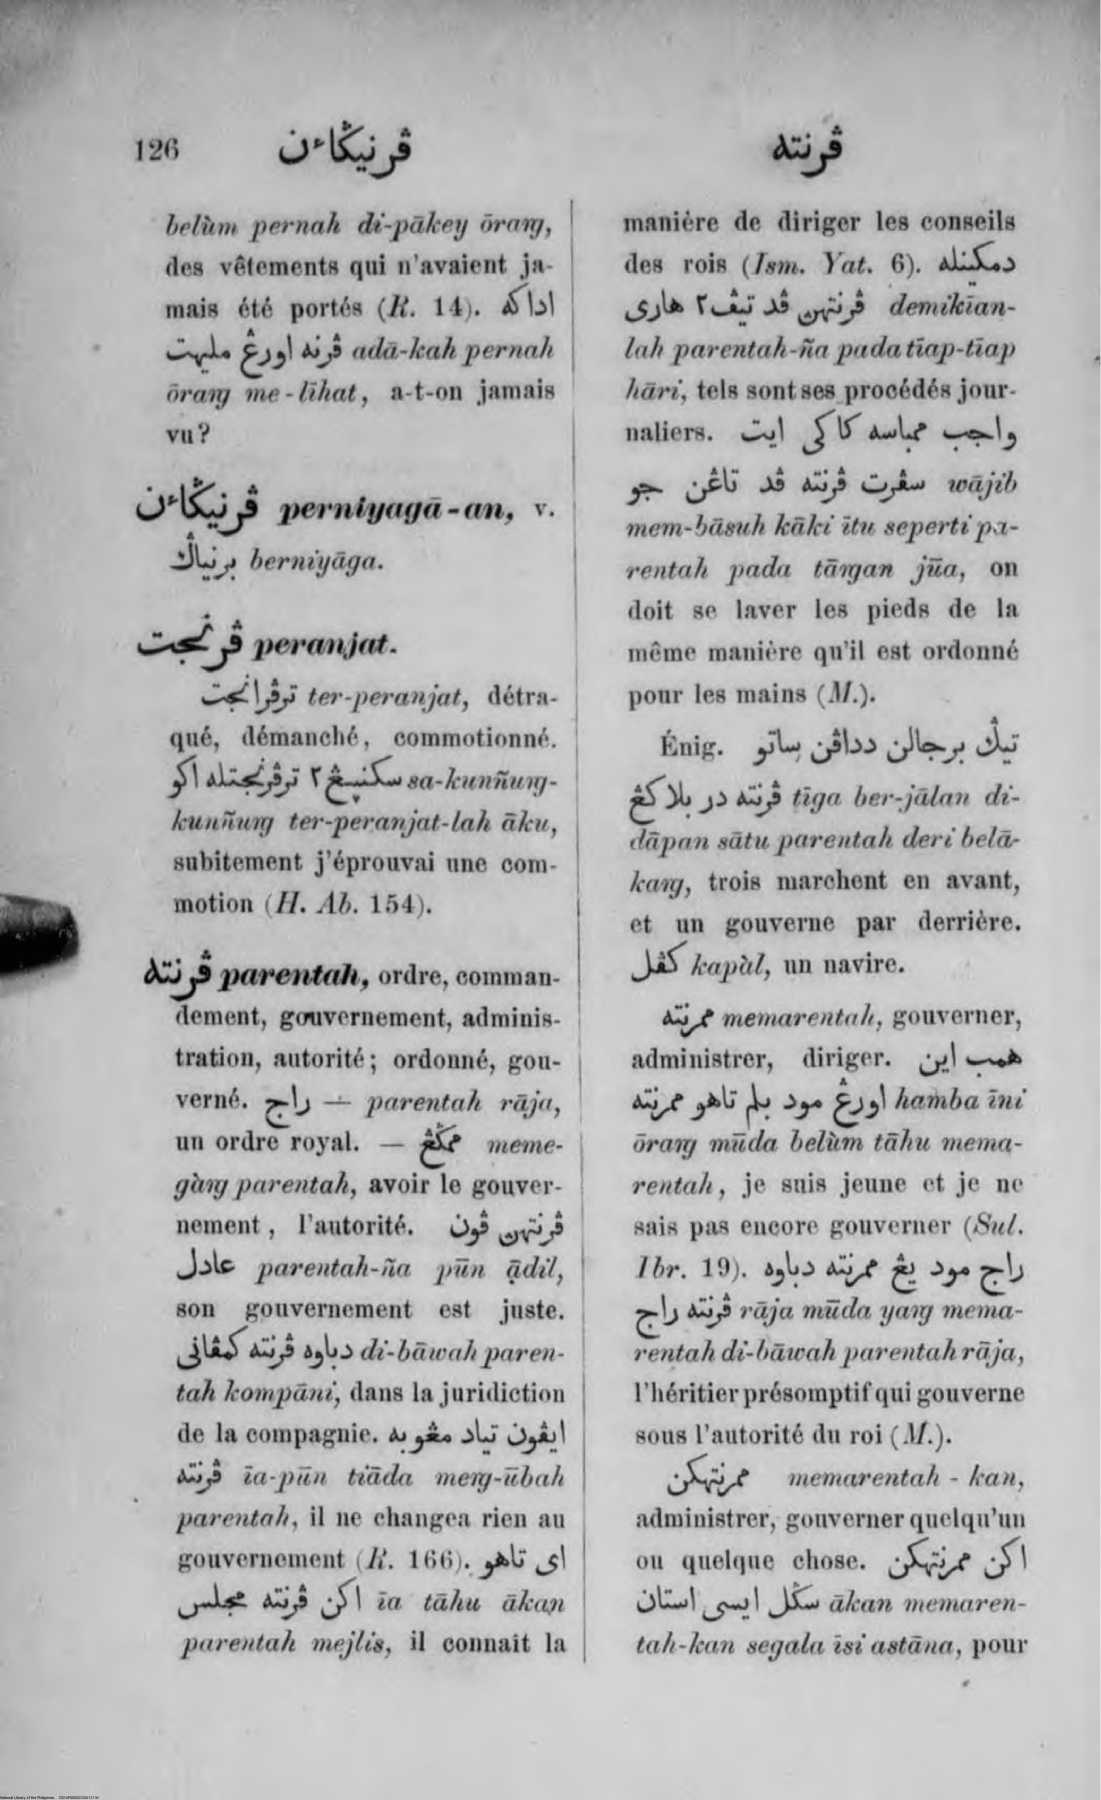 126 ڤرنيݢاءن ڤرنته
belùm pernah di-pākey ōrang,
des vêtements qui n'avaient ja-
mais été portés (R. 14). اداکه
ڤرنه اورڠ مليهت adā-kah pernah
ōrang me-līhat, a-t-on jamais
vu?
ڤرنيݢاءن perniyagā-an, v.
برنياݢ berniyāga.
ڤرنجت peranjat.
ترڤرانجت ter-peranjat, détra-
qué, démanché, commotionné.
سکنيڠ٢ ترڤرنجتله اکو sa-kunñung-
kunñung ter-peranjat-lah āku,
subitement j'éprouvai une com-
motion (H. Ab. 154).
ڤرنته parentah, ordre, comman-
dement, gouvernement, adminis-
tration, autorité; ordonné, gou-
verné. راج — parentah rāja,
un ordre royal. — ممݢڠ meme-
gàng parentah, avoir le gouver-
nement, l'autorité. ڤرنتهن ڤون
عادل parentah-ña pūn ạ̄dil,
son gouvernement est juste.
دباوه ڤرنته کمڤانى di-bāwah paren-
tah kompāni, dans la juridiction
de la compagnie. ايڤون تياد مڠوبه
ڤرنته īa-pūn tiāda meng-ūbah
parentah, il ne changea rien au
gouvernement (R. 166). اى تاهو
اکن ڤرنته مجلس īa tāhu ākan
parentah mejlis, il connaît la
manière de diriger les conseils
des rois (Ism. Yat. 6). دمکينله
ڤرنتهن ڤد تيڤ٢ هارى demikīan-
lah parentah-ña pada tīap-tīap
hāri, tels sont ses procédés jour-
naliers. واجب ممباسه کاکى ايت
سڤرت ڤرنته ڤد تاڠن جو wājib
mem-bāsuh kāki ītu seperti pa-
rentah pada tāngan jūa, on
doit se laver les pieds de la
même manière qu'il est ordonné
pour les mains (M.).
Énig. تيݢ برجالن دداڤن ساتو
ڤرنته در بلاکڠ tīga ber-jālan di-
dāpan sātu parentah deri belā-
kang, trois marchent en avant,
et un gouverne par derrière.
کڤل kapàl, un navire.
ممرنته memarentah, gouverner,
administrer, diriger. همب اين
اورڠ مود بلم تاهو ممرنته hamba īni
ōrang mūda belùm tāhu mema-
rentah, je suis jeune et je ne
sais pas encore gouverner (Sul.
Ibr. 19). راج مود يڠ ممرنته دباوه
ڤرنته راج rāja mūda yang mema-
rentah di-bāwah parentah rāja,
l'héritier présomptif qui gouverne
sous l'autorité du roi (M.).
ممرنتهکن memarentah-kan,
administrer, gouverner quelqu'un
ou quelque chose. اکن ممرنتهکن
سݢل ايسى استان ākan memaren-
tah-kan segala īsi astāna, pour